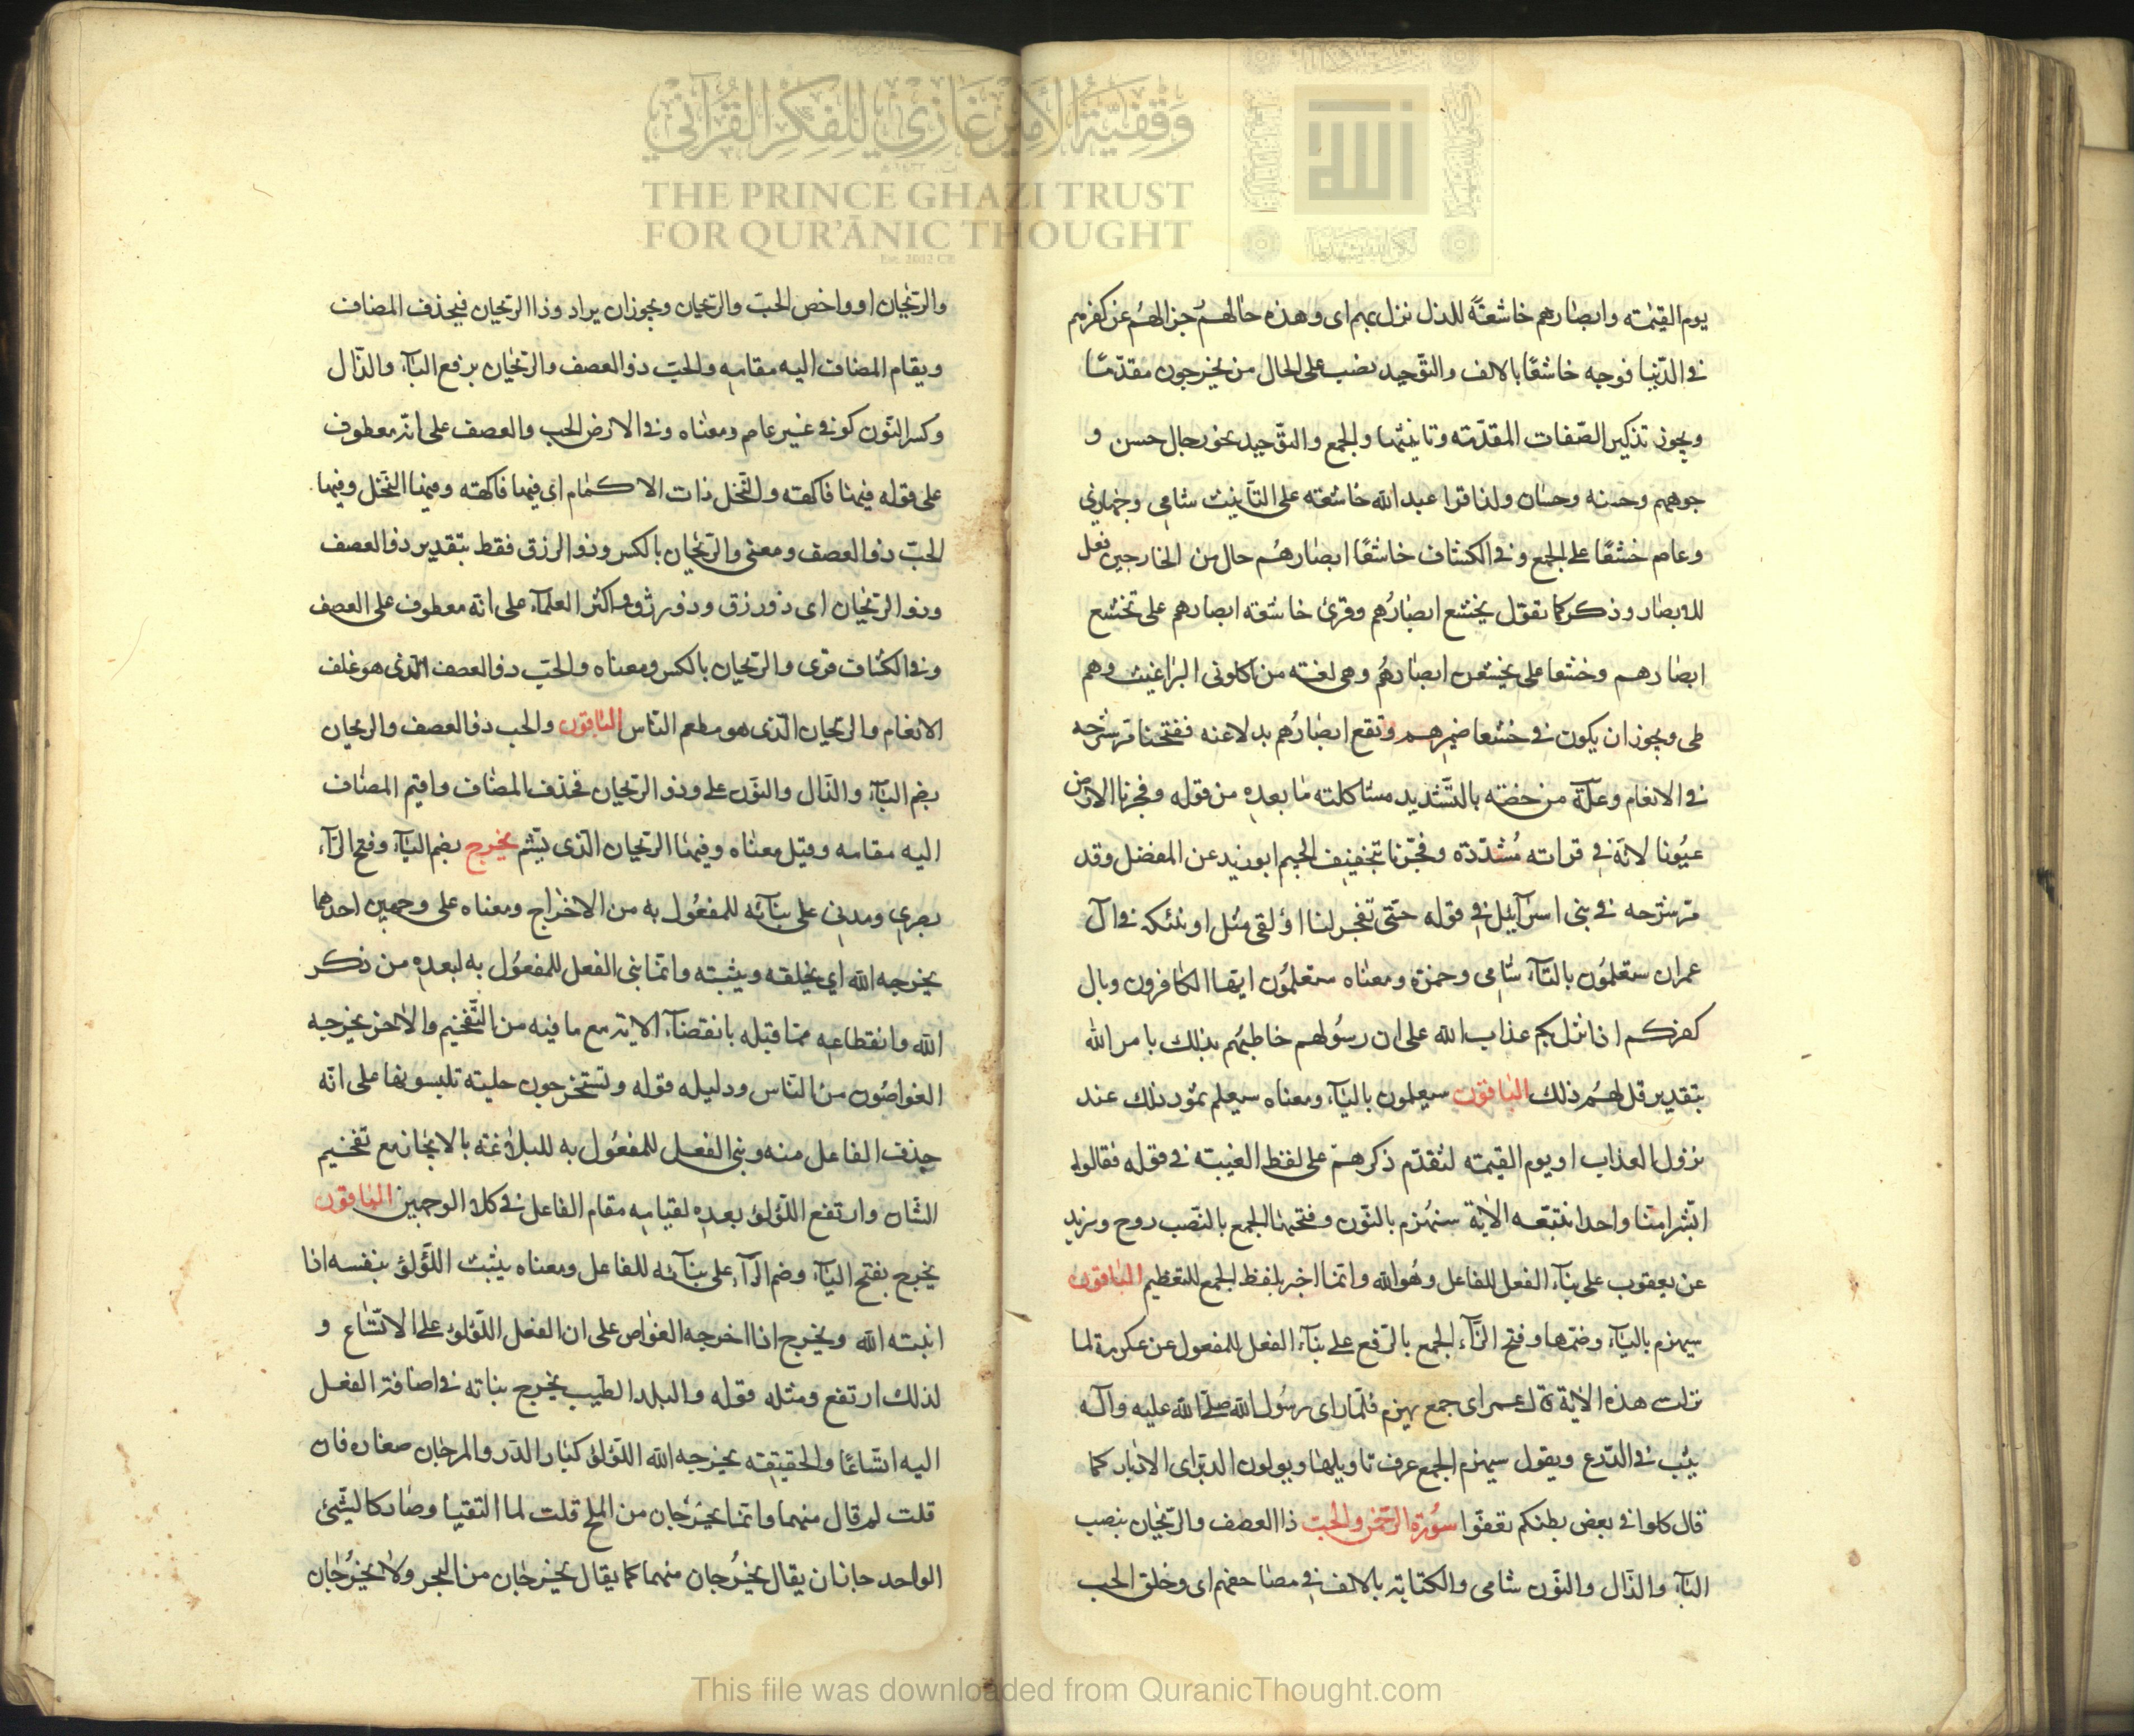 وقفية الأمير غازي للفكر القرآني
THE PRINCE GHAZI TRUST
FOR QUR'ĀNIC THOUGHT
Est. 2012 CE
الله
يوم القيمة وابصارهم خاشعة للذل نزل بهم اى وهذه حالهم جزالهم عن كفرهم
فى الدنيا فوجه خاشعًا بالالف والتوحيد نصب على الحال من يخرجون مقدمًا
ويجوز تذكير الصفات المقدمة وتانيثها والجمع والتوحيد نحو رجال حسن و
جوههم وحسنة وحسان ولذا قرا عبد الله خاشعة على التأنيث شامى وحجازى
وعاصم خشعًا على الجمع وفى الكشاف خاشعًا ابصارهم حال من الخارجين فعل
للابصار وذكر كما تقول يخشع ابصارهم وقرئ خاشعة ابصارهم على تخشع
ابصارهم وخشعا على يخشعن ابصارهم وهى لغة من اكلونى البراغيث وهم
طى ويجوز ان يكون فى خشعا ضميرهم وتقع ابصارهم بدلا عنه ففتحنا مر شرحه
فى الانعام وعلة من خصه بالتشديد مشاكلة ما بعده من قوله وفجرنا الارض
عيونا لانه فى قراته مشددة وفجرنا بتخفيف الجيم ابو زيد عن المفضل وقد
مر شرحه فى بنى اسرآئيل فى قوله حتى تفجر لنا اؤلقى مثل اونبئكم فى آل
عمران ستعلمون بالتآء شامى وحمزة ومعناه ستعلمون ايها الكافرون وبال
كفركم اذا نزل بكم عذاب الله على ان رسولهم خاطبهم بذلك بامر الله
بتقدير قل لهم ذلك الباقون سيعلمون باليآء ومعناه سيعلم ثمود ذلك عند
نزول العذاب او يوم القيمة لتقدم ذكرهم على لفظ الغيبة فى قوله فقالوا
ابشرا منا واحدا نتبعه الاية سنهزم بالنون وفتحها الجمع بالنصب روح وزيد
عن يعقوب على بنآء الفعل للفاعل وهو الله وانما اخبر بلفظ الجمع للتعظيم الباقون
سيهزم باليآء وضمها وفتح الزآء الجمع بالرفع على بنآء الفعل للمفعول عن عكرمة لما
نزلت هذه الاية قال عمر اى جمع يهزم فلما راى رسول الله صلى الله عليه وآله
يثب فى الدرع ويقول سيهزم الجمع عرف تاويلها ويولون الدبر اى الادبار كما
قال كلوا فى بعض بطنكم تعفوا سورة الرحمن والحب ذا العصف والريحان بنصب
البآء والذال والنون شامى والكتابة بالالف فى مصاحفهم اى وخلق الحب
والريحان او واخص الحب والريحان ويجوز ان يراد وذا الريحان فيحذف المضاف
ويقام المضاف اليه مقامه والحب ذو العصف والريحان برفع البآء والذال
وكسر النون كوفى غير عاصم ومعناه وفى الارض الحب والعصف على انه معطوف
على قوله فيها فاكهة والنخل ذات الاكمام اى فيها فاكهة وفيها النخل وفيها
الحب ذو العصف ومعنى والريحان بالكسر وذو الرزق فقط بتقدير ذو العصف
وذو الريحان اى ذو رزق وذو رزق واكثر العلمآء على انه معطوف على العصف
وفى الكشاف قرى والريحان بالكسر ومعناه والحب ذو العصف الذى هو علف
الانعام والريحان الذى هو مطعم الناس الباقون والحب ذو العصف والريحان
بضم البآء والذال والنون على وذو الريحان فحذف المضاف واقيم المضاف
اليه مقامه وقيل معناه وفيها الريحان الذى يشم يخرج بضم اليآء وفتح الرآء
بصرى ومدنى على بنآئه للمفعول به من الاخراج ومعناه على وجهين احدهما
يخرجه الله اي يخلقه ويثبته وانما بنى الفعل للمفعول به لبعده من ذكر
الله وانقطاعه مما قبله بانقضآء الاية مع ما فيه من التفخيم والاخر يخرجه
الغواصون من الناس ودليله قوله وتستخرجون حلية تلبسونها على انه
حذف الفاعل منه وبنى الفعل للمفعول به للبلاغة بالايجاز مع تفخيم
الشان وارتفع اللؤلؤ بعده لقيامه مقام الفاعل فى كلا الوجهين الباقون
يخرج بفتح اليآء وضم الرآء على بنآئه للفاعل ومعناه ينبت اللؤلؤ بنفسه اذا
انبته الله ويخرج اذا اخرجه الغواص على ان الفعل اللؤلؤ على الاتساع و
لذلك ارتفع ومثله قوله والبلد الطيب يخرج نباته فى اضافة الفعل
اليه اتساعًا والحقيقة يخرجه الله اللؤلؤ كبار الدر والمرجان صغاره فان
قلت لم قال منهما وانما يخرجان من الملح قلت لما التقيا وصارا كالشئ
الواحد جاز ان يقال يخرجان منهما كما يقال يخرجان من البحر ولا يخرجان
This file was downloaded from QuranicThought.com